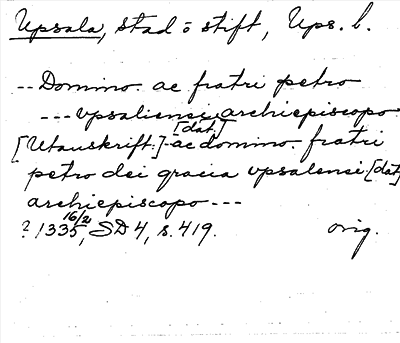 Upsala, stad o stift, Ups. l.
-- Domino. ac fratri petro
--- vpsaliensi archiepiscopo
[Utanskrift.] [dat.] - ac domino. fratri
petro dei gracia vpsalensi [dat.]
archiepiscopo ---
? 1335 16/2, SD 4, s. 419. orig.